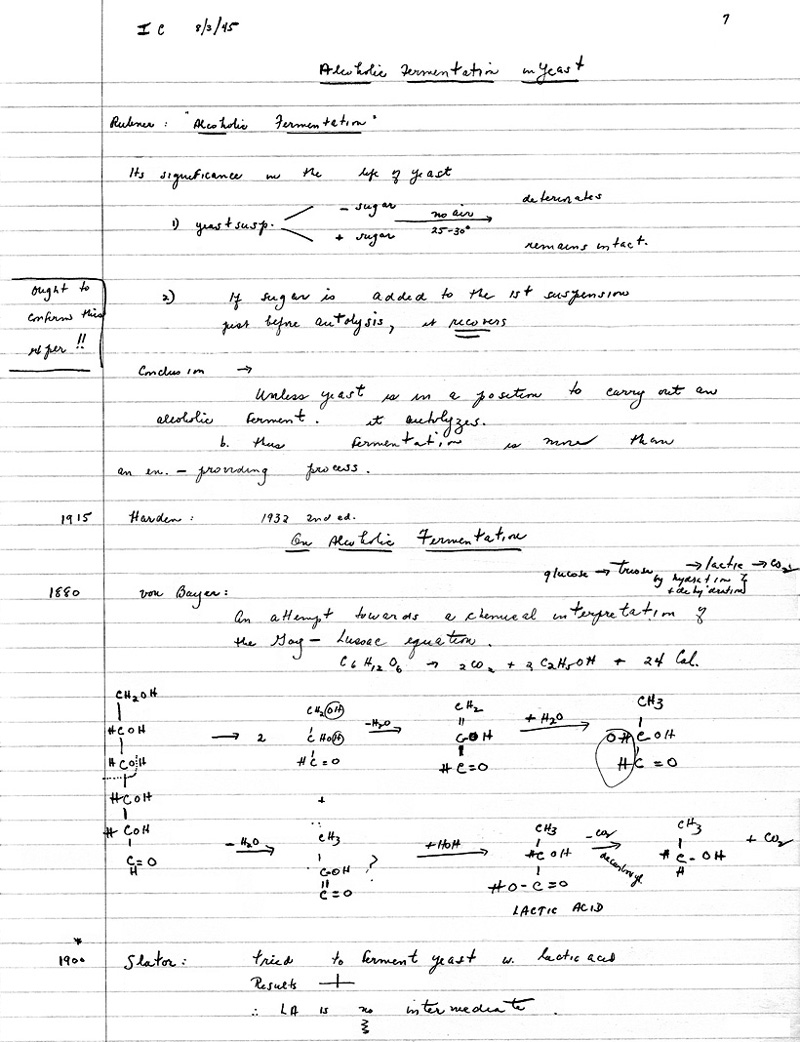 I C 8/3/45
7
Alcoholic Fermentation in Yeast
Rubner: "Alcoholic Fermentation"
Its significance in the life of yeast
1) yeast susp. - sugar no air deteriorates
+ sugar 25-30° remains intact.
ought to
confirm this
2) If sugar is added to the 1st suspension
just before autolysis, it recovers
Conclusion →
Unless yeast is in a position to carry out an
alcoholic ferment. it autolyzes.
b. thus fermentation is more than
an en. - providing process.
1915 Harden: 1932 2nd ed.
On Alcoholic Fermentation
glucose → triose → lactic → CO2
by hydration &
+ dehydration
1880 von Bayer:
An attempt towards a chemical interpretation of
the Gay - Lussac equation.
C6H12O6 → 2CO2 + 2 C2H5OH + 24 Cal.
CH2OH CH2OH CH2 CH3
HCOH → 2 CHOH -H2O COH +H2O OH C OH
HCOH HC=O HC=O HC=O
HCOH +
HCOH -H2O CH3 +HOH CH3 -CO2 CH3 + CO2
C=O COH ? HCOH decarboxyl. HC-OH
H C=O HO-C=O H
LACTIC ACID
1900 Slator: tried to ferment yeast w. lactic acid
Results
∴ LA is no intermediate.